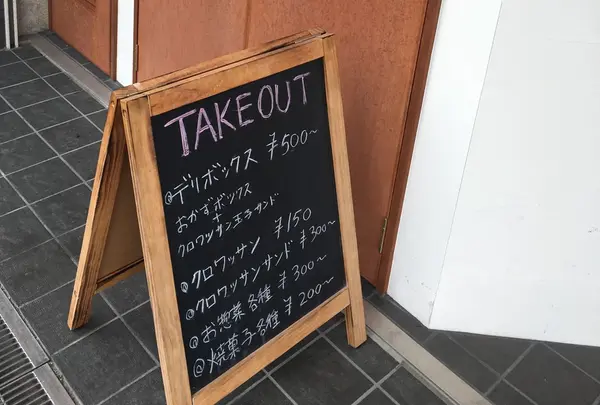 TAKEOUT
◎デリボックス ¥500〜
おかずボックス
+
クロワッサン玉子サンド
◎クロワッサン ¥150
◎クロワッサンサンド ¥300〜
◎お惣菜各種 ¥300〜
◎焼菓子各種 ¥200〜